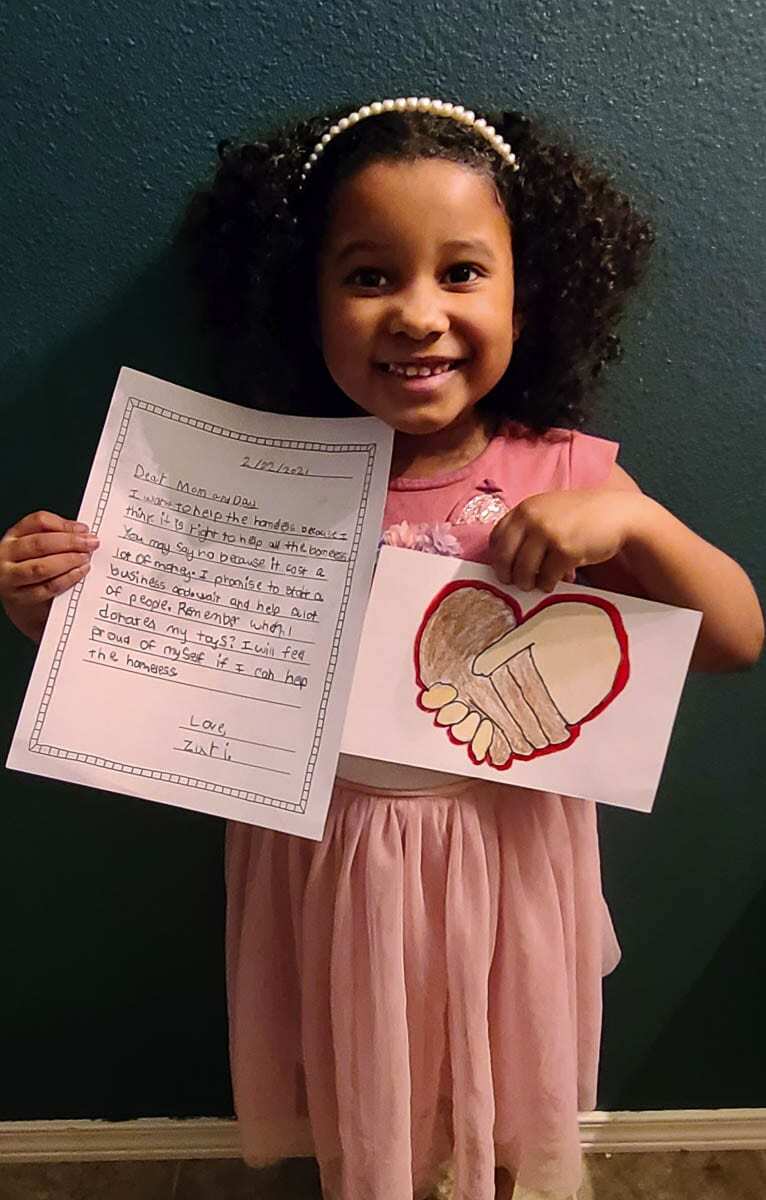 2/22/2021
Dear Mom and Day
I want to help the homeless because I
think it is right to help all the homeless
You may say no because it cost a
lot of money. I promise to start a
business and wait and help a lot
of people. Remember when I
donates my toys? I will feel
proud of myself if I can help
the homeless
Love,
Zuri,